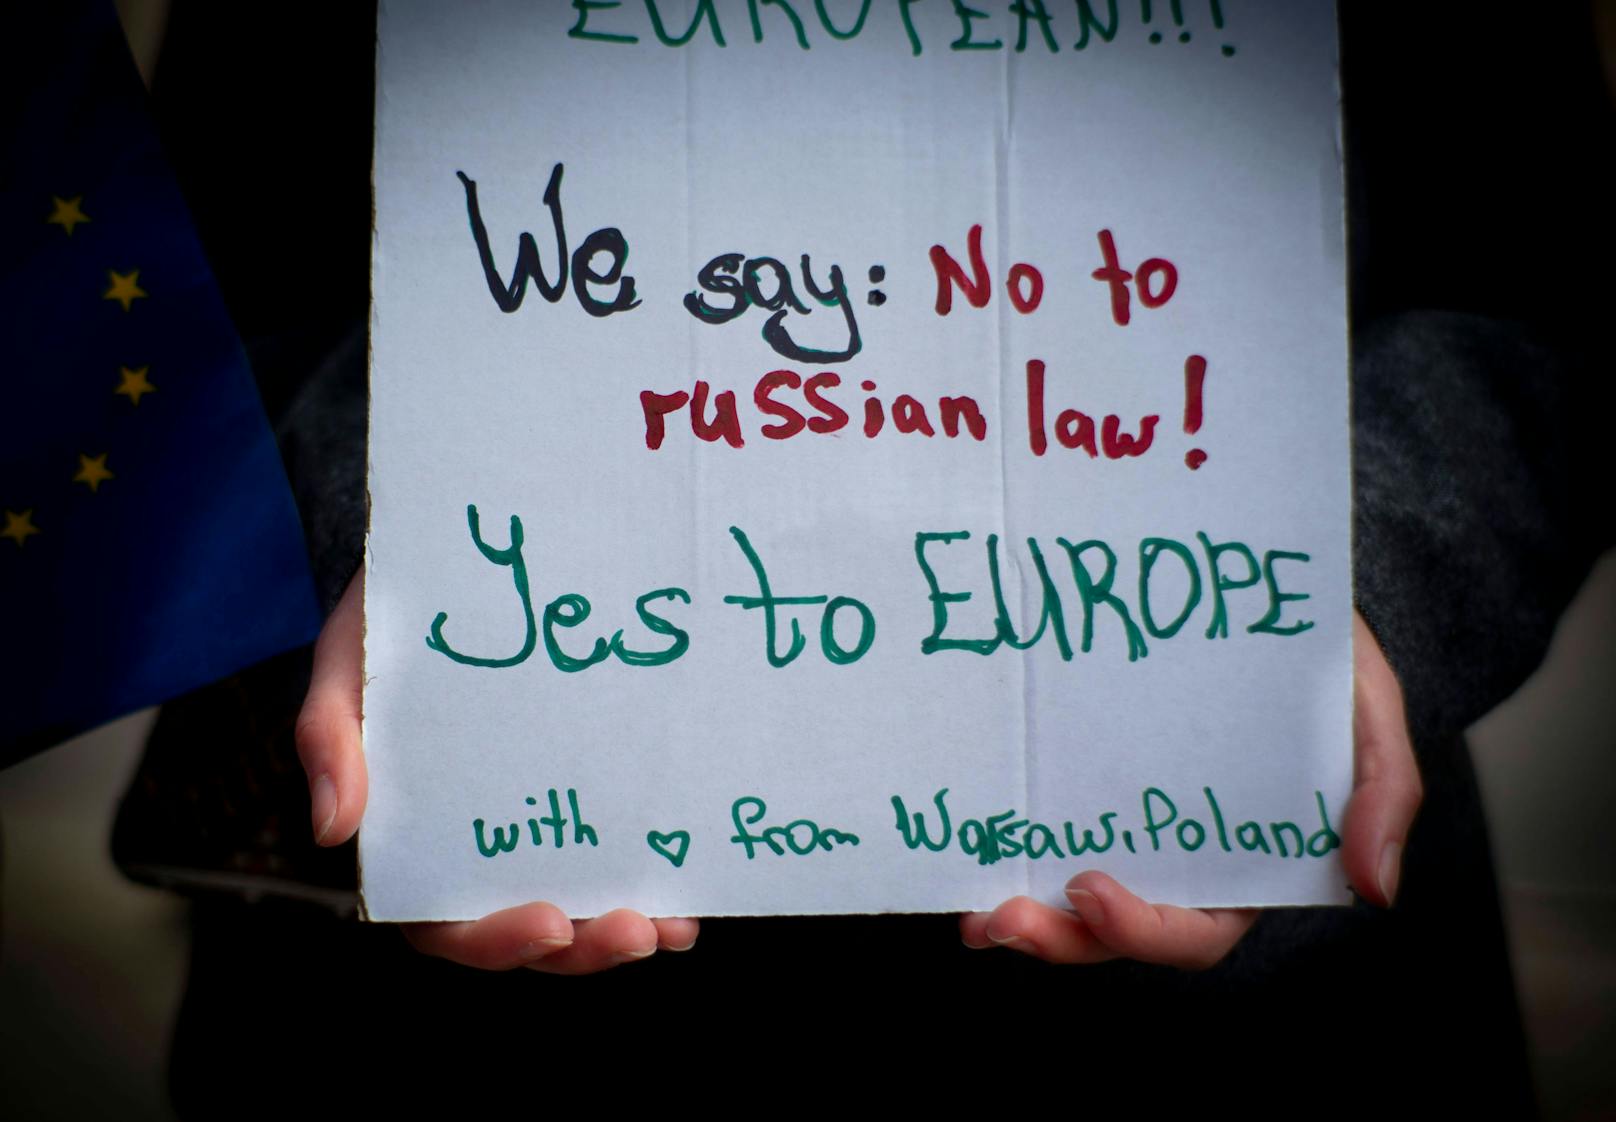 EUROPEAN!!!
We say: No to
russian law!
Yes to EUROPE
with ♡ from Warsaw, Poland